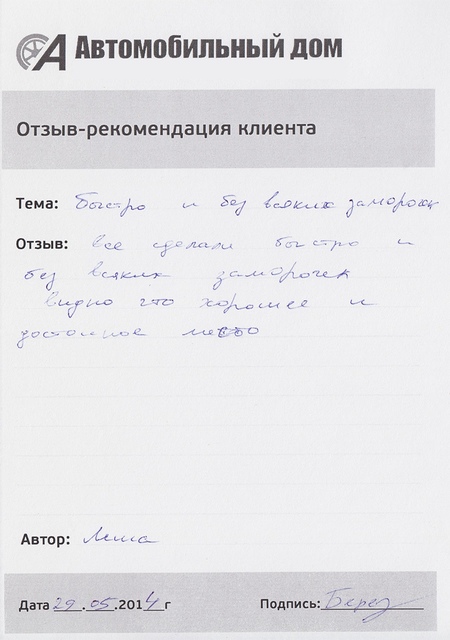 Автомобильный дом
Отзыв-рекомендация клиента
Тема: Быстро и без всяких заморочек
Отзыв: все сделали быстро и
без всяких заморочек
видно что хорошее и
достойное место
Автор: Леша
Дата 29.05.2014г Подпись: Берез